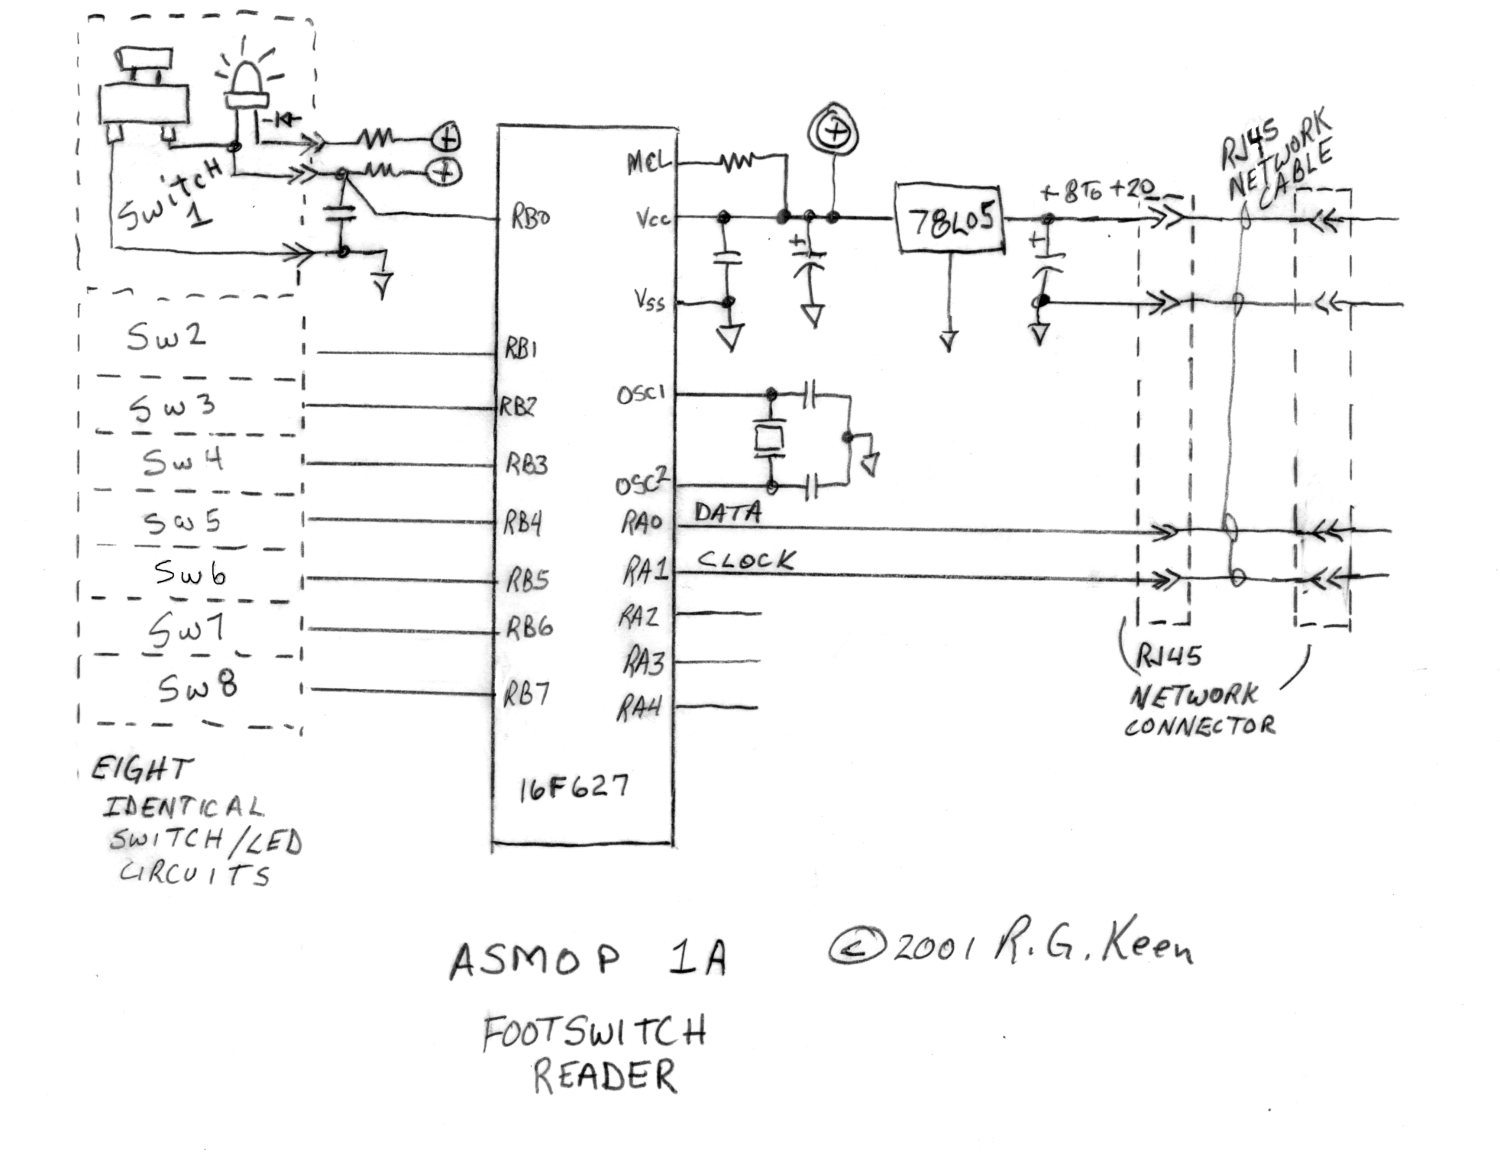 Switch
1
+
+
SW2
SW3
SW4
SW5
SW6
SW7
SW8
EIGHT
IDENTICAL
SWITCH/LED
CIRCUITS
RB0
RB1
RB2
RB3
RB4
RB5
RB6
RB7
16F627
MCL
Vcc
Vss
OSC1
OSC2
RA0
RA1
RA2
RA3
RA4
DATA
CLOCK
+
+
78L05
+
+8 TO +20
RJ45
NETWORK
CABLE
RJ45
NETWORK
CONNECTOR
ASMOP 1A
© 2001 R.G. Keen
FOOTSWITCH
READER